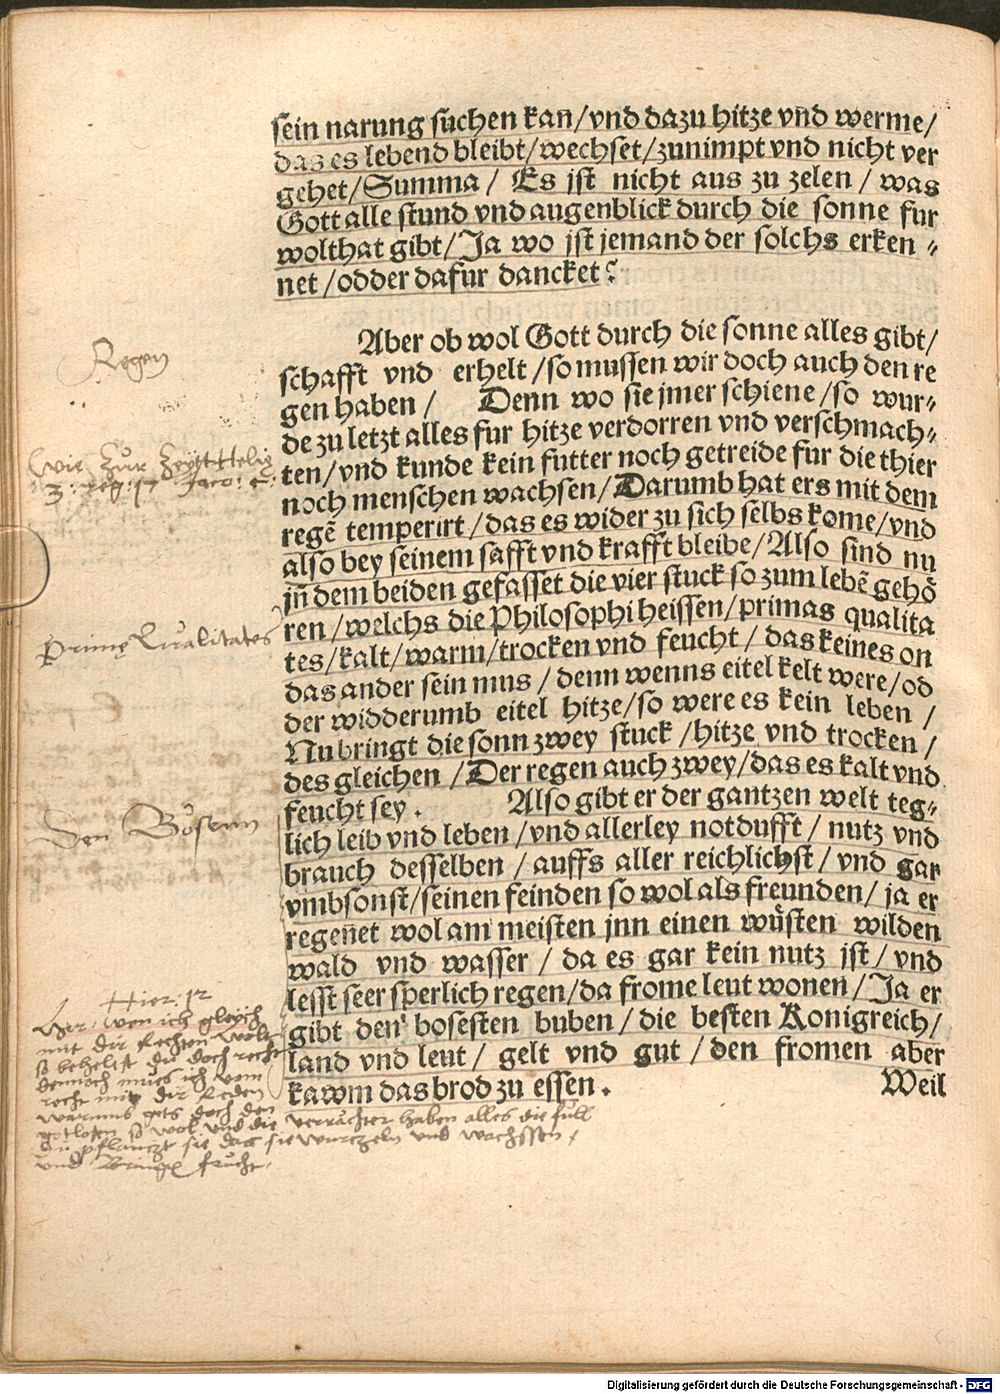 sein narung suchen kan/vnd dazu hitze vnd werme/
das es lebend bleibt/wechset/zunimpt vnd nicht ver
gehet/Summa/ Es jst nicht aus zu zelen/was
Gott alle stund vnd augenblick durch die sonne fur
wolthat gibt/Ja wo jst jemand der solchs erken⸗
net/odder dafür dancket?
Aber ob wol Gott durch die sonne alles gibt/
schafft vnd erhelt/so mussen wir doch auch den re
gen haben/ Denn wo sie jmer schiene/so wur⸗
de zu letzt alles fur hitze verdorren vnd verschmach⸗
ten/vnd kunde kein futter noch getreide fur die thier
noch menschen wachsen/Darumb hat ers mit dem
regẽ temperirt/das es wider zu sich selbs kome/vnd
also bey seinem safft vnd krafft bleibe/Also sind nu
jñ dem beiden gefasset die vier stuck so zum lebẽ gehö
ren/welchs die Philosophi heissen/primas qualita
tes/kalt/warm/trocken vnd feucht/das keines on
das ander sein mus/denn wenns eitel kelt were/od
der widderumb eitel hitze/so were es kein leben/
Nu bringt die sonn zwey stuck/hitze vnd trocken/
des gleichen/Der regen auch zwey/das es kalt vnd
feucht sey. Also gibt er der gantzen welt teg⸗
lich leib vnd leben/vnd allerley notdufft/nutz vnd
brauch desselben/auffs aller reichlichst/vnd gar
vmbsonst/seinen feinden so wol als freunden/ja er
regenet wol am meisten jnn einen wůsten wilden
wald vnd wasser/da es gar kein nutz jst/vnd
lesst seer sperlich regen/da frome leut wonen/Ja er
gibt den bosesten buben/die besten Konigreich/
land vnd leut/ gelt vnd gut/den fromen aber
kawm das brod zu essen.
Weil
Regen
Wie zur Zeytt Helie
3. reg: 17 Jaco: 5.
Primę Qualitates
Den Bösenn
Hier: 12
Her: wen ich gleich
mit dir Rechten wolt
so behelst du doch recht
dennoch mues ich vom
recht mit dir Reden
warumb gets doch den
gotlosen so wol und die verrächter haben alles die füll
du pflantzt sie das sie wurtzeln und wachssen
und bringen frucht.
Digitalisierung gefördert durch die Deutsche Forschungsgemeinschaft - DFG